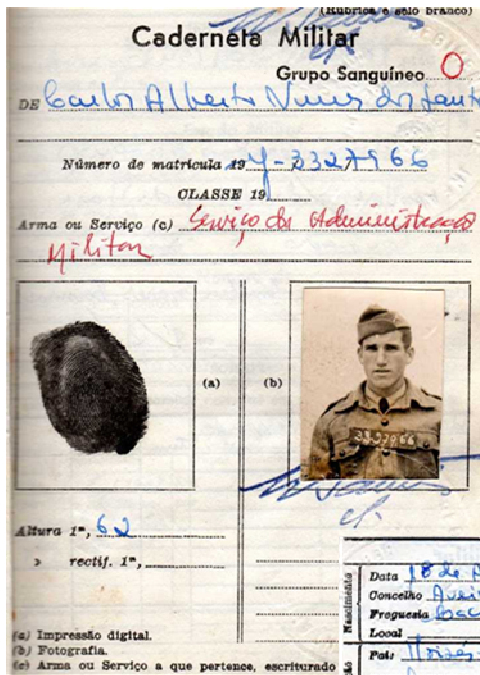 (Rubrica e selo branco)
Caderneta Militar
Grupo Sanguíneo O
DE Carlos Alberto Nunes dos Sant
Número de matrícula 19 3327966
CLASSE 19
Arma ou Serviço (c) Serviço da Administração
Militar
(a) (b)
33.279 66
Altura 1m, 62
» rectif. 1m,
(a) Impressão digital.
(b) Fotografia.
(c) Arma ou Serviço a que pertence, escriturado
Nascimento
Data 18 de
Concelho Avei
Freguesia Cac
Local
Pai: Moisés